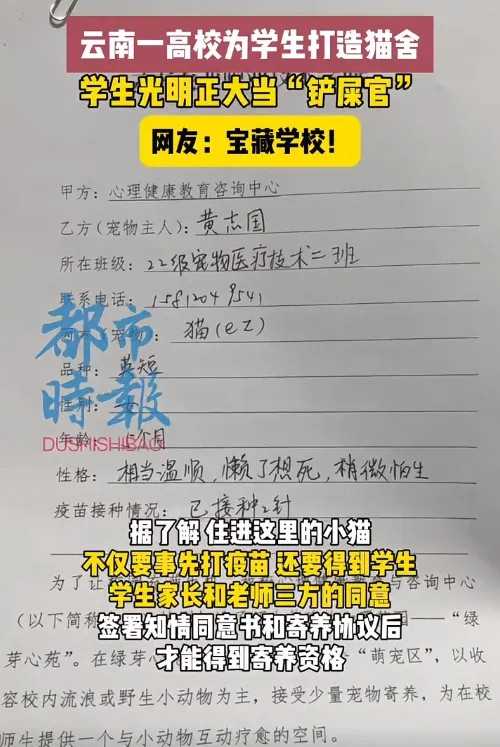 云南一高校为学生打造猫舍
学生光明正大当“铲屎官”
网友：宝藏学校！
甲方：心理健康教育咨询中心
乙方（宠物主人）：黄志国
所在班级：22级宠物医疗技术二班
联系电话：15812049541
猫（ez）
都市
時報
DUSHISHIBAO
品种：英短
性别：女
年龄：5个月
性格：相当温顺，懒了想死，稍微怕生
疫苗接种情况：已接种2针
据了解 住进这里的小猫
不仅要事先打疫苗 还要得到学生
学生家长和老师三方的同意
为了让
与咨询中心
签署知情同意书和寄养协议后
（以下简称
——“绿
才能得到寄养资格
芽心苑”。在绿芽心
“萌宠区”，以收
容校内流浪或野生小动物为主，接受少量宠物寄养，为在校
师生提供一个与小动物互动疗愈的空间。